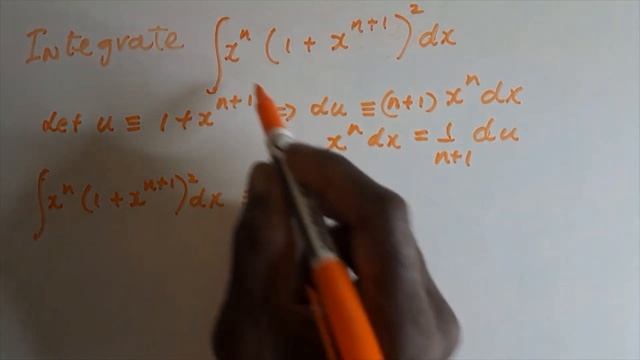 Integrate ∫xⁿ(1 + xⁿ⁺¹)²dx
Let u ≡ 1+xⁿ⁺¹ => du ≡ (n+1) xⁿ dx
xⁿ dx = 1/(n+1) du
∫xⁿ(1+xⁿ⁺¹)²dx =